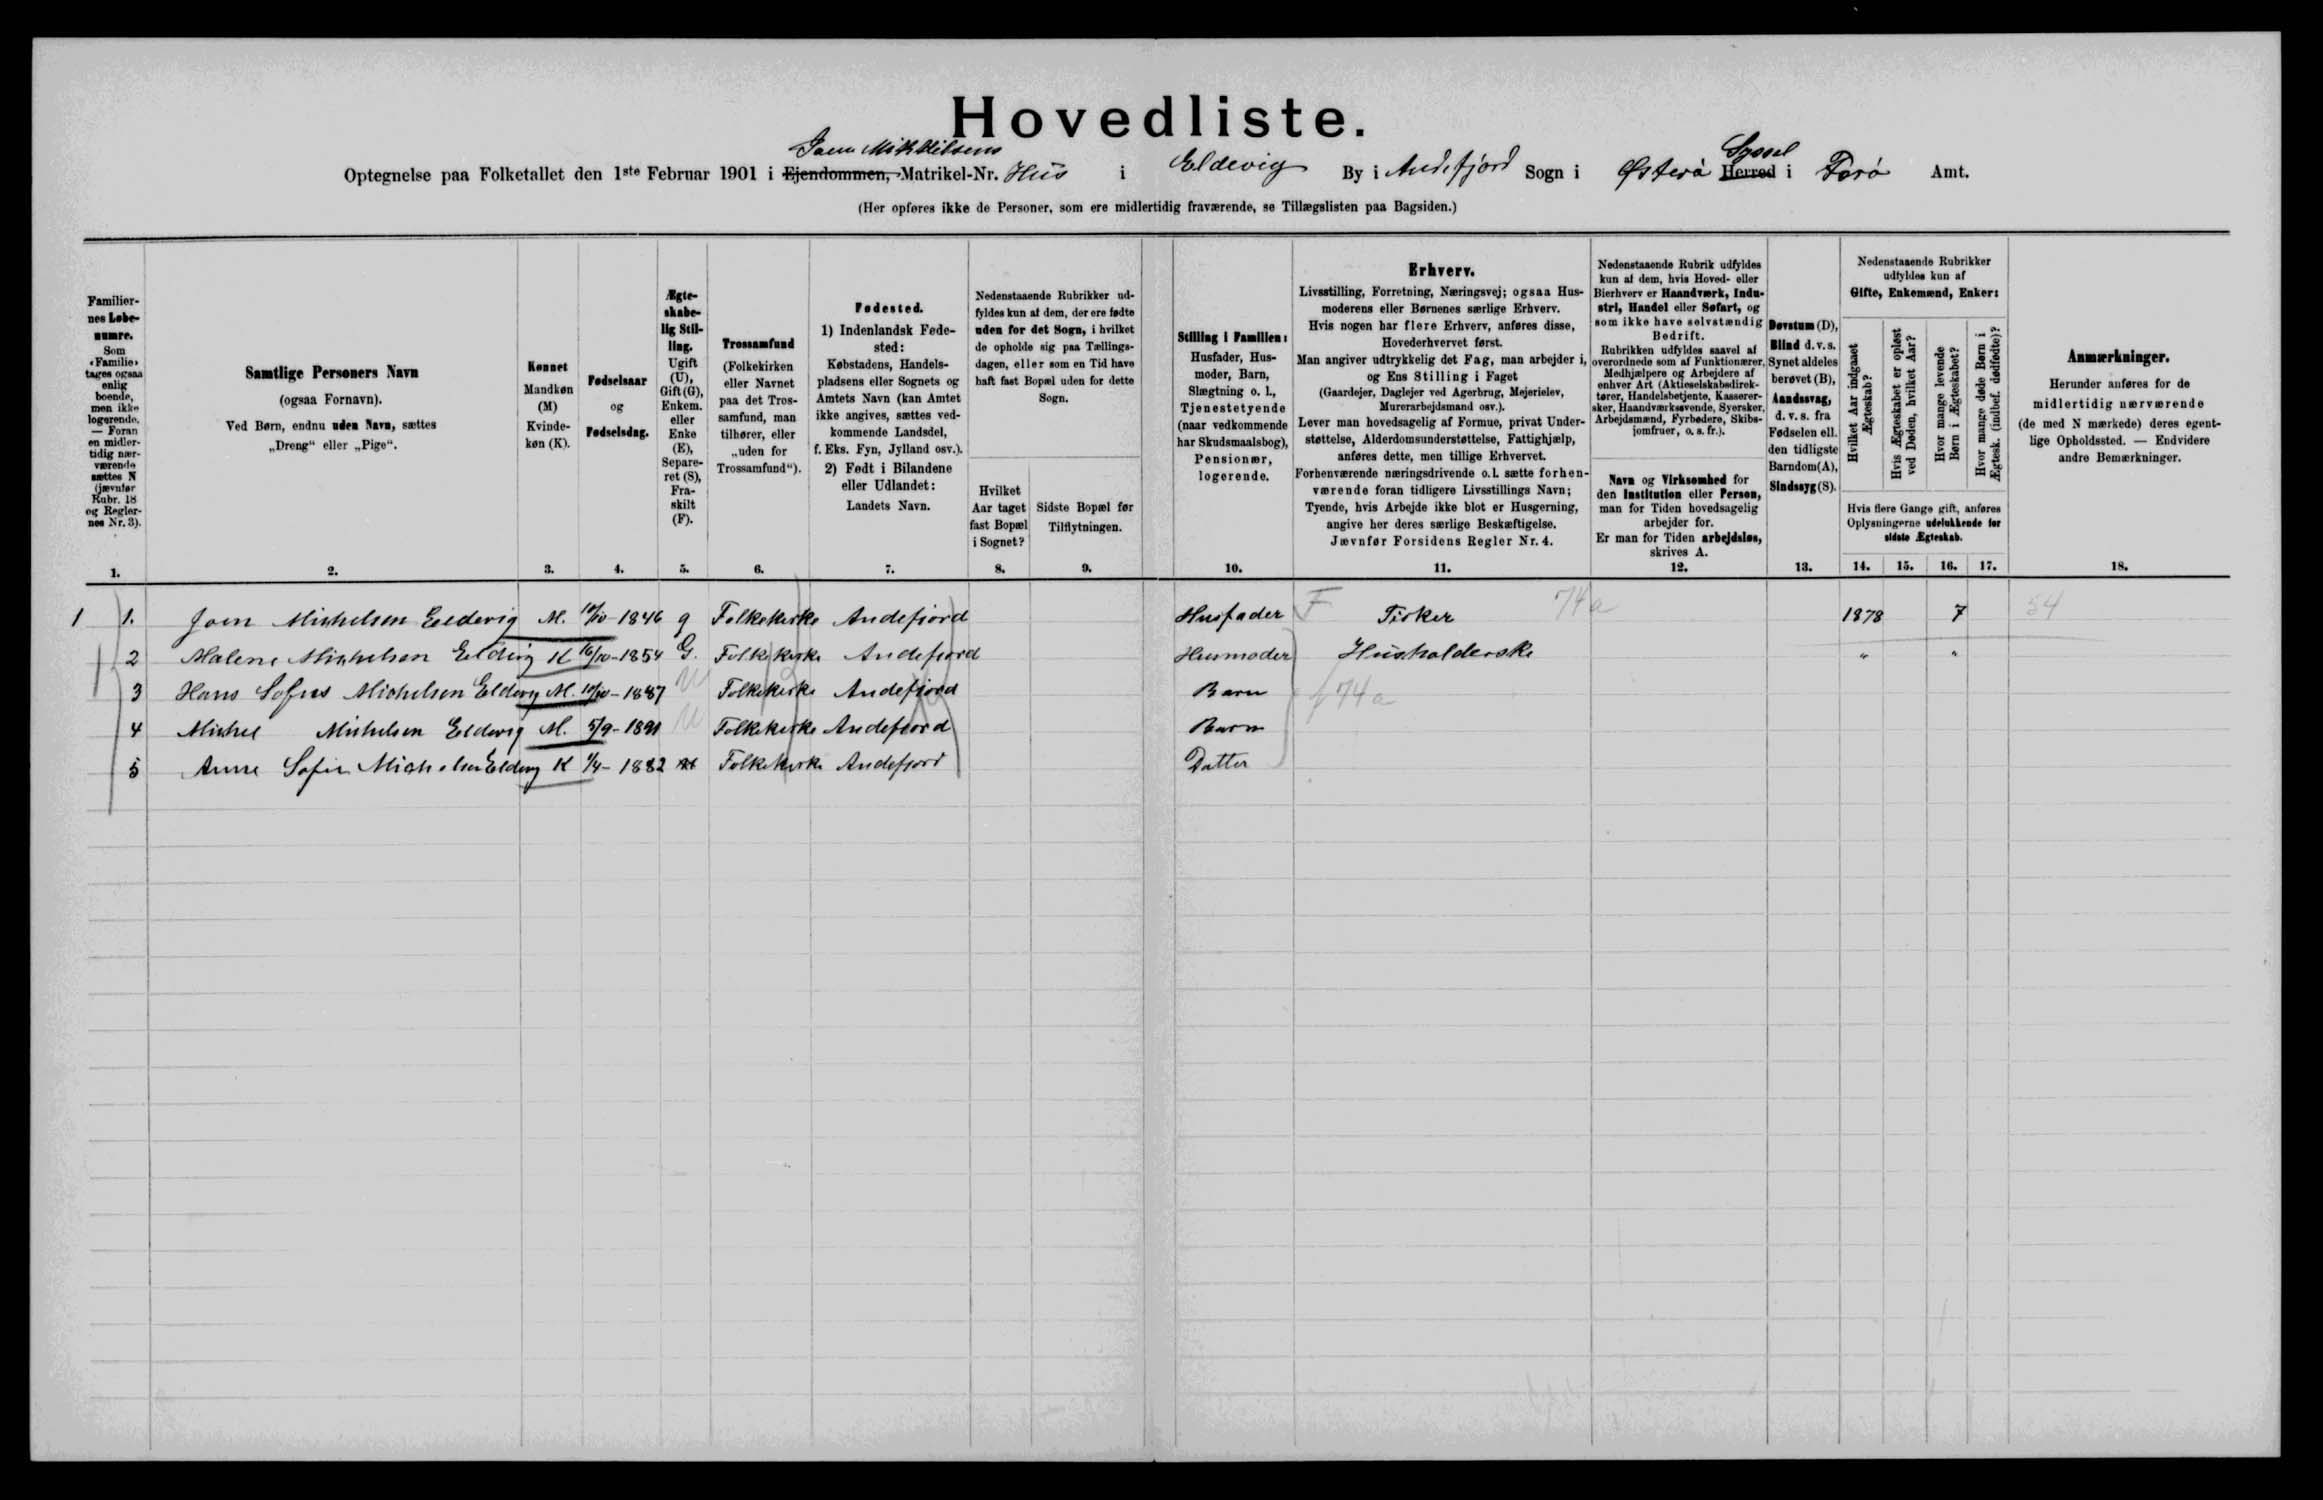 Hovedliste.
Joen Mikkelsens
Syssel
Optegnelse paa Folketallet den 1ste Februar 1901 i Ejendommen, Matrikel-Nr. Hus i Eldevig By i Andefjord Sogn i Østerø Herred i Færø Amt.
(Her opføres ikke de Personer, som ere midlertidig fraværende, se Tillægslisten paa Bagsiden.)
Familier-
nes Løbe-
numre.
Som
«Familie»
tages ogsaa
enlig
boende,
men ikke
logerende.
— Foran
en midler-
tidig nær-
værende
sættes N
(jævnfør
Rubr. 18
og Regler-
nes Nr. 3).
1.
Samtlige Personers Navn
(ogsaa Fornavn).
Ved Børn, endnu uden Navn, sættes
„Dreng“ eller „Pige“.
2.
Kønnet
Mandkøn
(M)
Kvinde-
køn (K).
3.
Fødselsaar
og
Fødselsdag.
4.
Ægte-
skabe-
lig Stil-
ling.
Ugift
(U),
Gift (G),
Enkem.
eller
Enke
(E),
Separe-
ret (S),
Fra-
skilt
(F).
5.
Trossamfund
(Folkekirken
eller Navnet
paa det Tros-
samfund, man
tilhører, eller
„uden for
Trossamfund“).
6.
Fødested.
1) Indenlandsk Føde-
sted:
Købstadens, Handels-
pladsens eller Sognets og
Amtets Navn (kan Amtet
ikke angives, sættes ved-
kommende Landsdel,
f. Eks. Fyn, Jylland osv.).
2) Født i Bilandene
eller Udlandet:
Landets Navn.
7.
Nedenstaaende Rubrikker ud-
fyldes kun af dem, der ere fødte
uden for det Sogn, i hvilket
de opholde sig paa Tællings-
dagen, eller som en Tid have
haft fast Bopæl uden for dette
Sogn.
Hvilket
Aar taget
fast Bopæl
i Sognet?
8.
Sidste Bopæl før
Tilflytningen.
9.
Stilling i Familien:
Husfader, Hus-
moder, Barn,
Slægtning o. l.,
Tjenestetyende
(naar vedkommende
har Skudsmaalsbog),
Pensionær,
logerende.
10.
Erhverv.
Livsstilling, Forretning, Næringsvej; ogsaa Hus-
moderens eller Børnenes særlige Erhverv.
Hvis nogen har flere Erhverv, anføres disse,
Hovederhvervet først.
Man angiver udtrykkelig det Fag, man arbejder i,
og Ens Stilling i Faget
(Gaardejer, Daglejer ved Agerbrug, Mejerielev,
Murerarbejdsmand osv.).
Lever man hovedsagelig af Formue, privat Under-
støttelse, Alderdomsunderstøttelse, Fattighjælp,
anføres dette, men tillige Erhvervet.
Forhenværende næringsdrivende o. l. sætte forhen-
værende foran tidligere Livsstillings Navn;
Tyende, hvis Arbejde ikke blot er Husgerning,
angive her deres særlige Beskæftigelse.
Jævnfør Forsidens Regler Nr. 4.
11.
Nedenstaaende Rubrik udfyldes
kun af dem, hvis Hoved- eller
Bierhverv er Haandværk, Indu-
stri, Handel eller Søfart, og
som ikke have selvstændig
Bedrift.
Rubrikken udfyldes saavel af
overordnede som af Funktionærer,
Medhjælpere og Arbejdere af
enhver Art (Aktieselskabsdirek-
tører, Handelsbetjente, Kasserer-
sker, Haandværkssvende, Syersker,
Arbejdsmænd, Fyrbødere, Skibs-
jomfruer, o. s. fr.).
Navn og Virksomhed for
den Institution eller Person,
man for Tiden hovedsagelig
arbejder for.
Er man for Tiden arbejdsløs,
skrives A.
12.
Døvstum (D),
Blind d. v. s.
Synet aldeles
berøvet (B),
Aandssvag,
d. v. s. fra
Fødselen ell.
den tidligste
Barndom (A),
Sindssyg (S).
13.
Nedenstaaende Rubrikker
udfyldes kun af
Gifte, Enkemænd, Enker:
Hvilket Aar indgaaet
Ægteskab?
Hvis Ægteskabet er opløst
ved Døden, hvilket Aar?
Hvor mange levende
Børn i Ægteskabet?
Hvor mange døde Børn i
Ægtesk. (indbef. dødfødte)?
Hvis flere Gange gift, anføres
Oplysningerne udelukkende for
sidste Ægteskab.
14. 15. 16. 17.
Anmærkninger.
Herunder anføres for de
midlertidig nærværende
(de med N mærkede) deres egent-
lige Opholdssted. — Endvidere
andre Bemærkninger.
18.
1 1. Joen Michelsen Eldevig M. 10/10-1846 g Folkekirke Andefjord Husfader F Fisker 74a 1878 7 54
2 Malene Michelsen Eldevig K 16/10-1854 G. Folkekirke Andefjord Husmoder Husholderske " "
3 Hans Sofus Michelsen Eldevig M. 10/10-1887 U Folkekirke Andefjord Barn f 74a
4 Michel Michelsen Eldevig M. 5/9-1891 U Folkekirke Andefjord Barn
5 Anne Sofie Michelsen Eldevig K 1/4-1882 Folkekirke Andefjord Datter